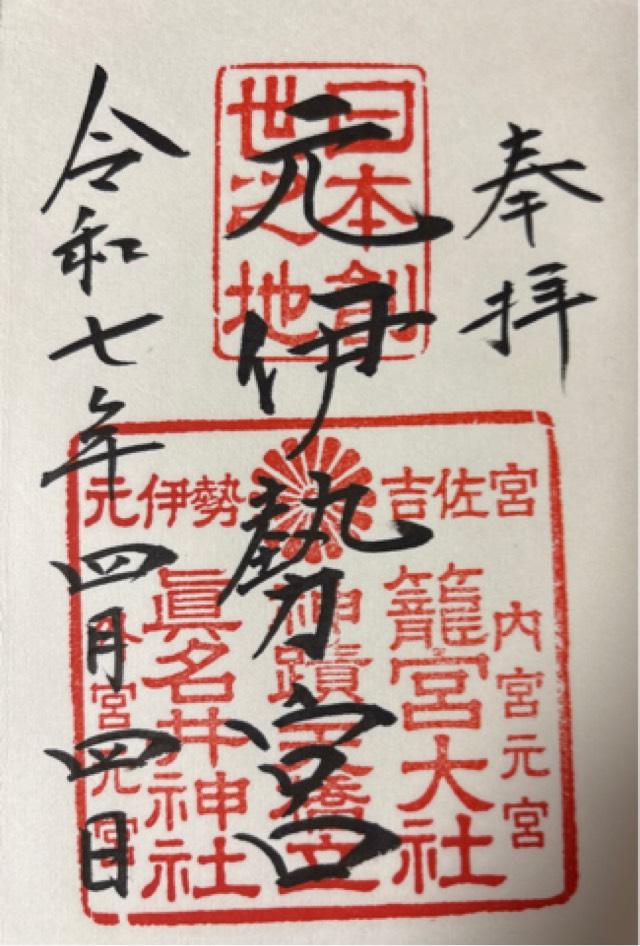 奉拝
日本創
世之地
元伊勢宮
令和七年四月四日
吉佐宮
元伊勢
内宮元宮
籠宮大社
神蹟天橋立
眞名井神社
外宮元宮